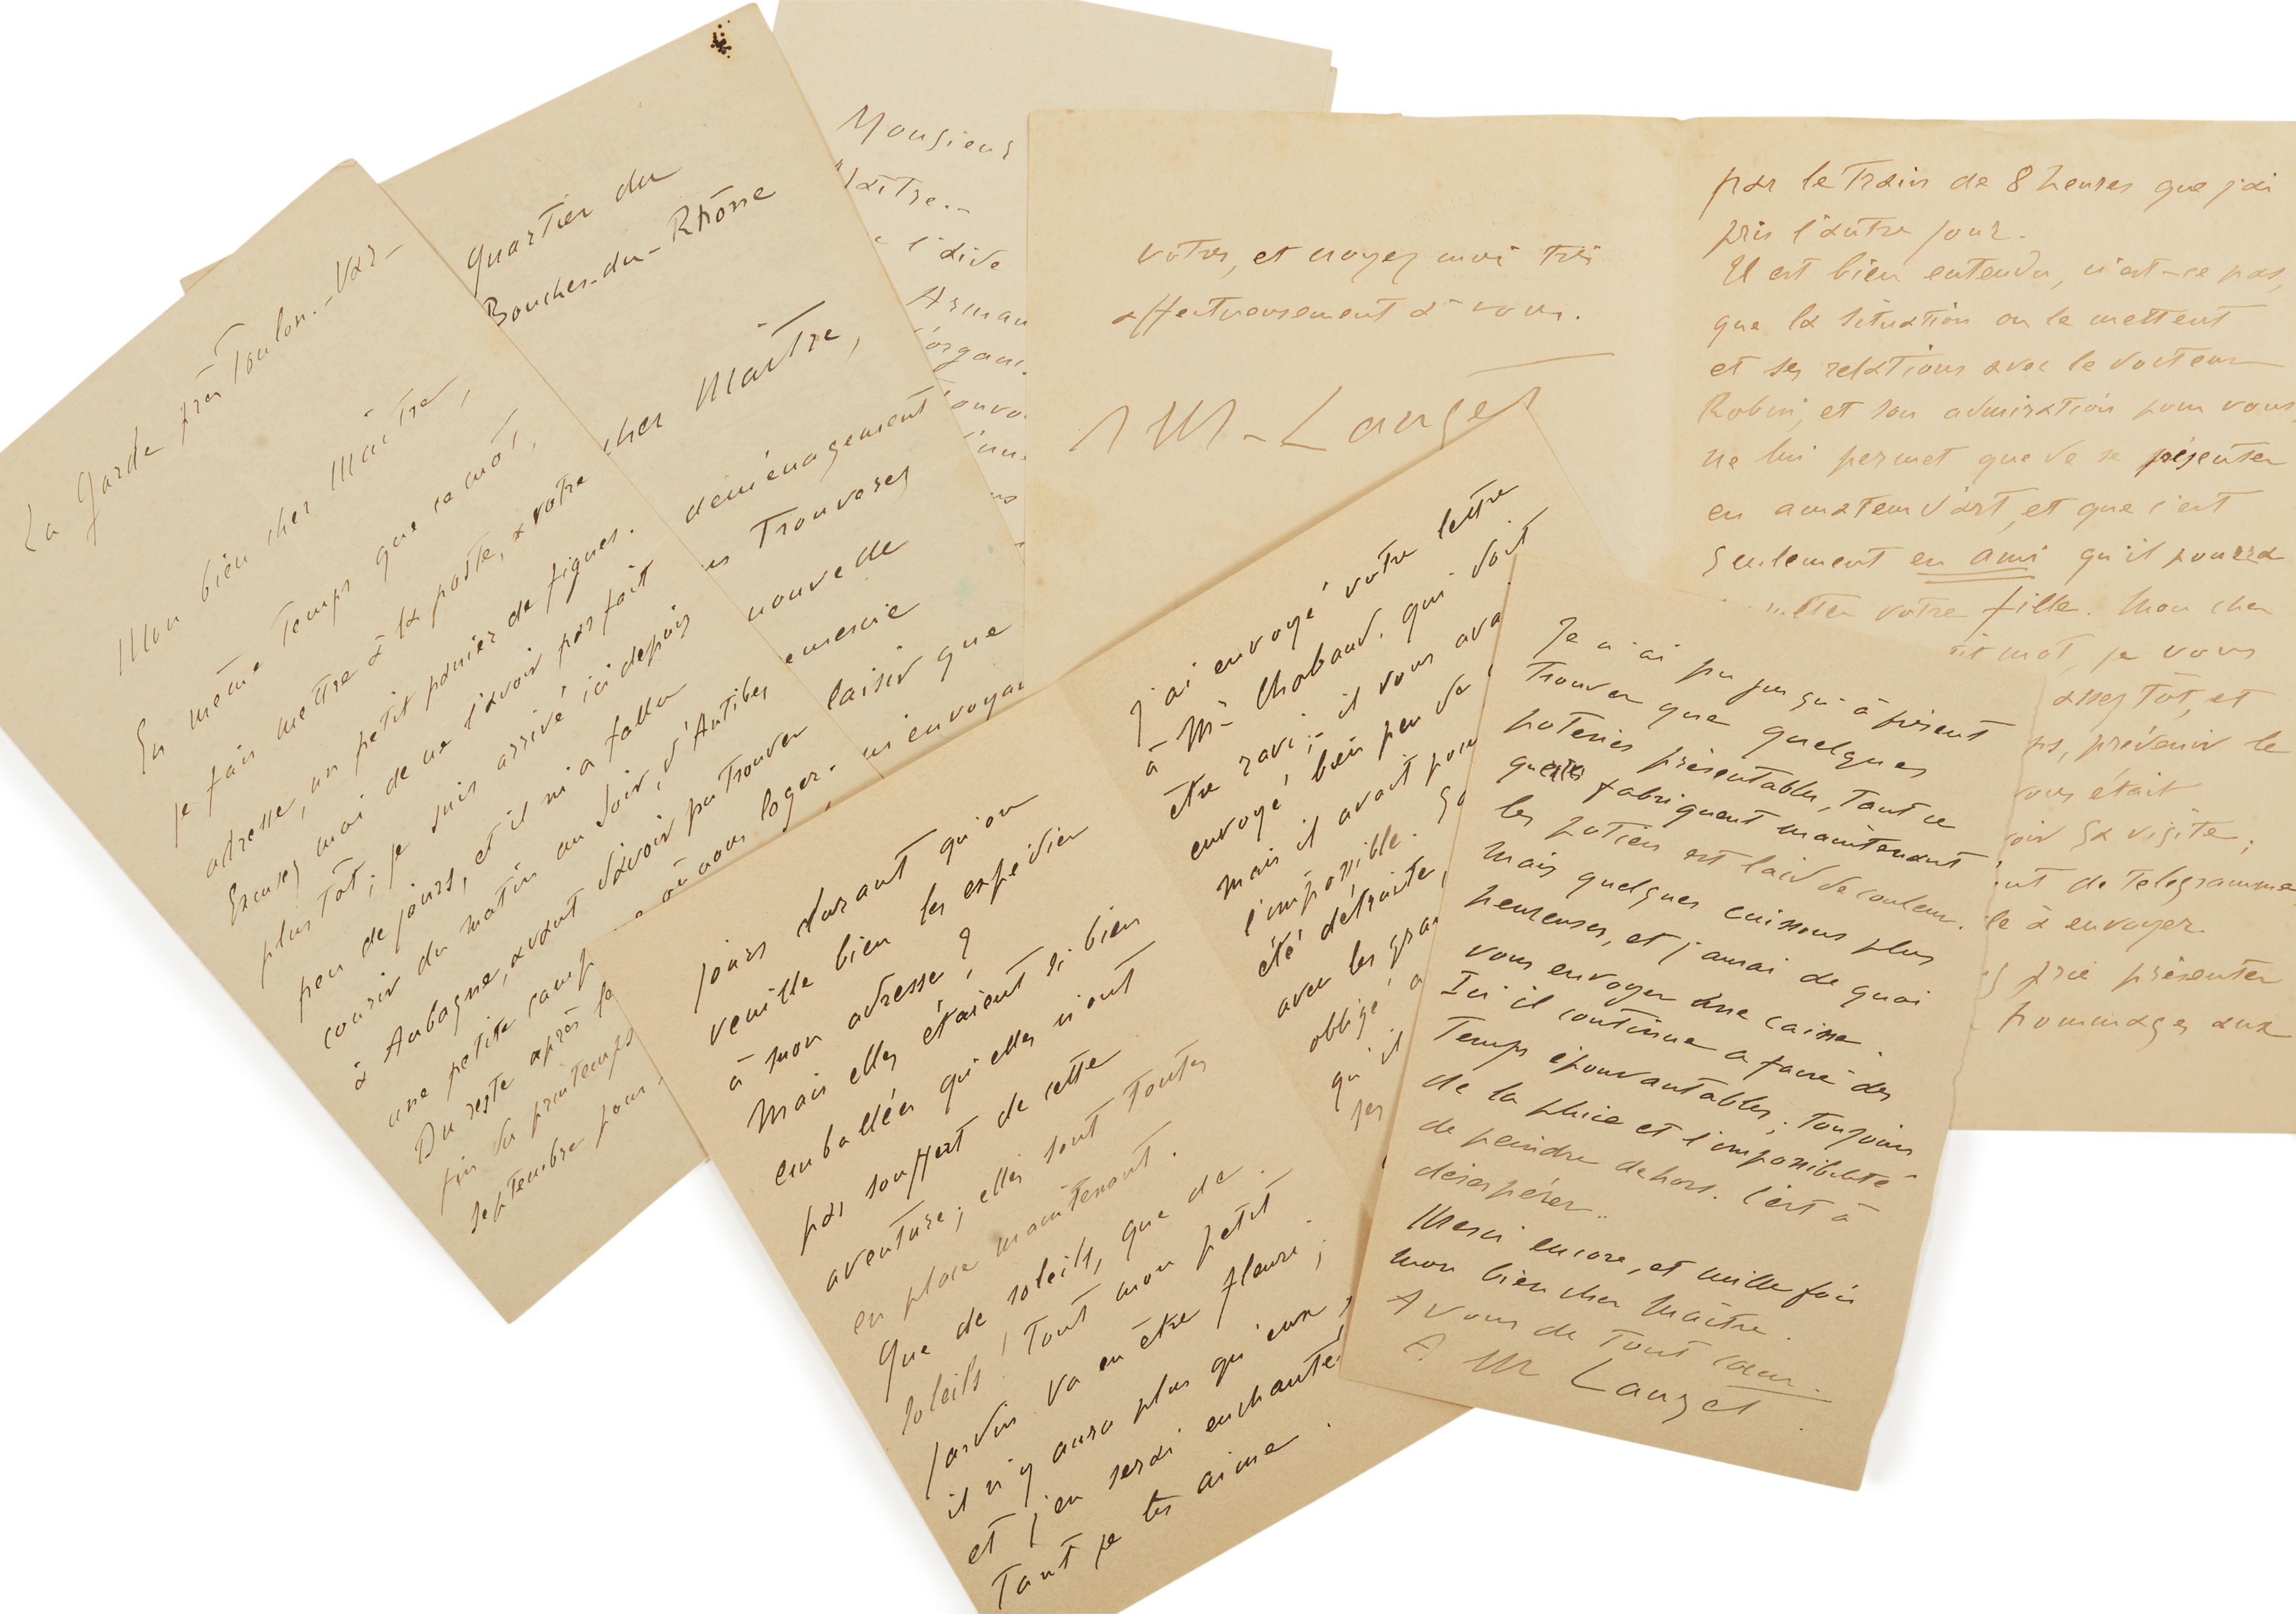 La Garde près Toulon. - Var -
Mon bien cher Maître,
En même temps que ce mot,
je fais mettre à la poste, à votre
adresse, un petit panier de figues.
Excusez moi de ne l'avoir pas fait
plus tôt; je suis arrivé ici depuis
peu de jours, et il m'a fallu
courir du matin au soir, d'Antibes
à Aubagne, avant d'avoir pu trouver
une petite camp
où nous loger.
Du reste après le
fin du printemps
septembre pour
Quartier du
Bouches-du-Rhône
cher Maître,
déménagement
Trouverez
nouvelle
emercie
laisir que
m'envoyai
Monsieur
Maître.-
l'aide
Arman
organi
votres, et croyez moi très
affectueusement à vous.
AM-Lauzet
par le train de 8 heures que j'ai
pris l'autre jour.
Il est bien entendu, n'est-ce pas,
que la situation où le mettent
et ses relations avec le docteur
Robin, et son admiration pour vous
ne lui permet que de se présenter
en amateur d'art, et que c'est
seulement en ami qu'il pourra
votre fille. Mon cher
mot, je vous
assez tôt, et
prévenir le
vous était
oir sa visite;
nt de telegramme
le à envoyer
prie présenter
hommages aux
jours durant qu'on
veuille bien les expédier
à mon adresse?
Mais elles étaient si bien
emballées qu'elles n'ont
pas souffert de cette
aventure; elles sont toutes
en place maintenant.
Que de soleils, que de
soleils! Tout mon petit
jardin va en être fleuri;
il n'y aura plus qu'eux,
et j'en serai enchanté
Tant je les aime.
j'ai envoyé votre lettre
à Mr Chabaud. qui doit
être ravi; il vous ava
envoyé, bien peu de
mais il avait pou
l'impossible. Sa
été détruite,
avec les gra
obligé, a
qu'il
Je n'ai pu jusqu'à présent
trouver que quelques
poteries présentables, tout ce
que fabriquent maintenant
les potiers est laid de couleur.
Mais quelques cuissons plus
heureuses, et j'aurai de quoi
vous envoyer une caisse.
Ici il continue a faire des
temps épouvantables; toujours
de la pluie et l'impossibilité
de peindre dehors. C'est à
désespérer..
Merci encore, et mille fois
mon bien cher Maître.
A vous de tout coeur.
A M Lauzet